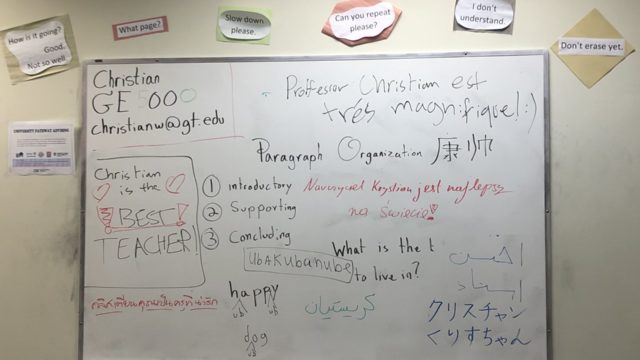 How is it going?
Good.
Not so well
What page?
Slow down
please.
Can you repeat
please?
I don't
understand.
Don't erase yet.
UNIVERSITY PATHWAY ADVISING
Christian
GE 5000
christianw@gt.edu
Proffessor Christian est
très magnifique! :)
Paragraph Organization 康
Christian
is the
BEST
TEACHER!
① introductory
② Supporting
③ Concluding
Nauczyciel Krystian jest najlepszy
na świecie!
UbAKubanube
What is the t
to live in?
happy
ub ub
dog
ub
كريستيان
クリスチャン
くりすちゃん